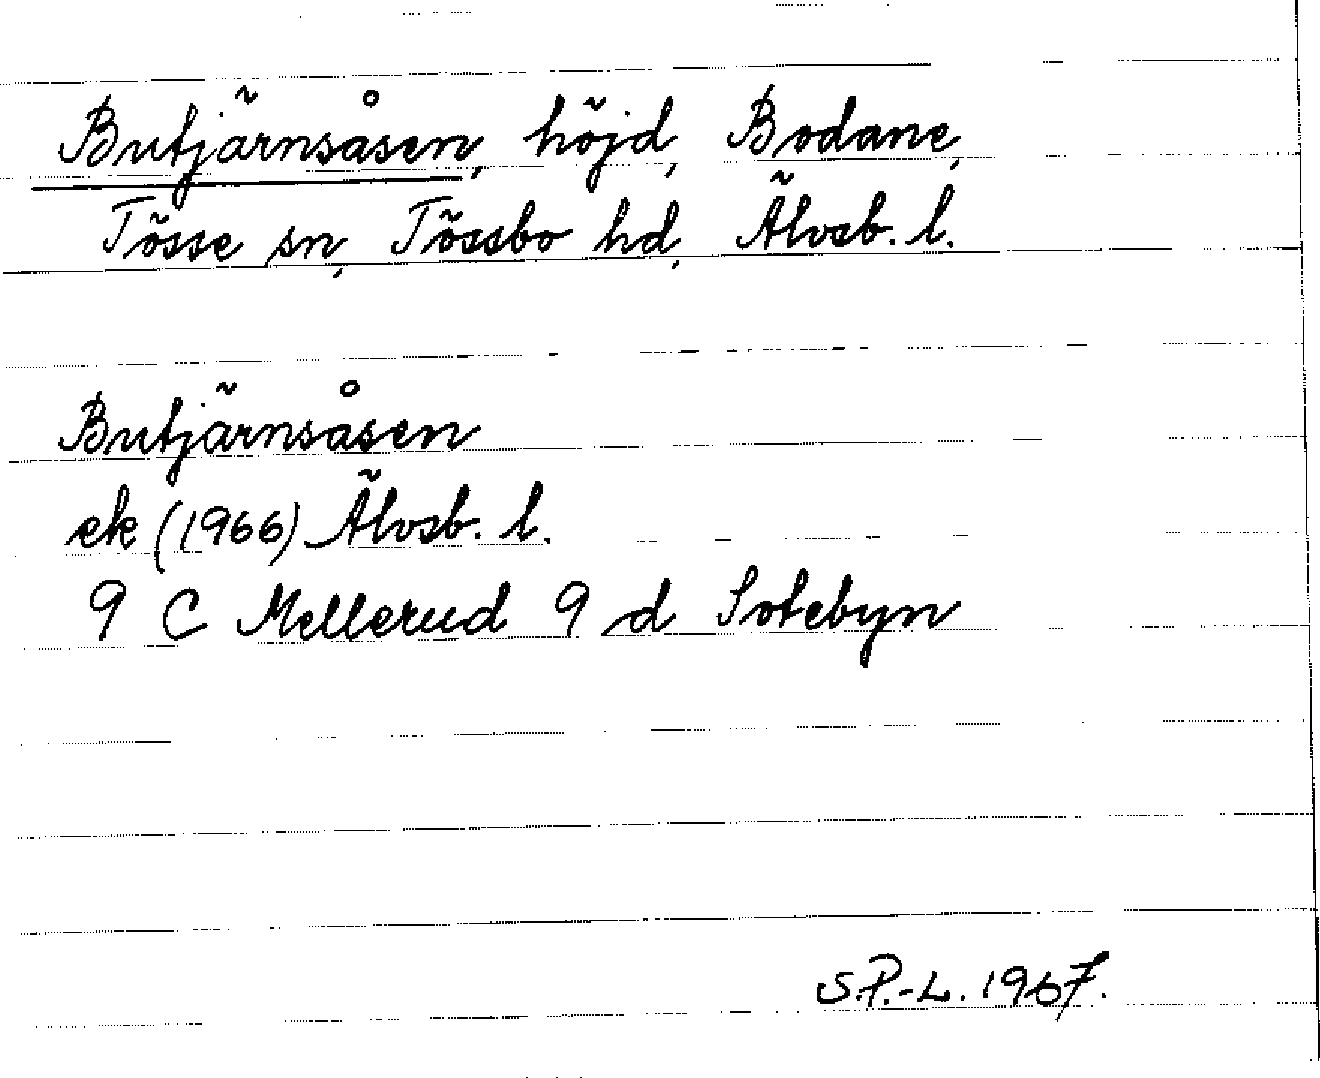 Butjärnsåsen, höjd, Bodane,
Tösse sn, Tössbo hd, Älvsb. l.
Butjärnsåsen
ek (1966) Älvsb. l.
9 C Mellerud 9 d Sotebyn
S.P.-L. 1967.